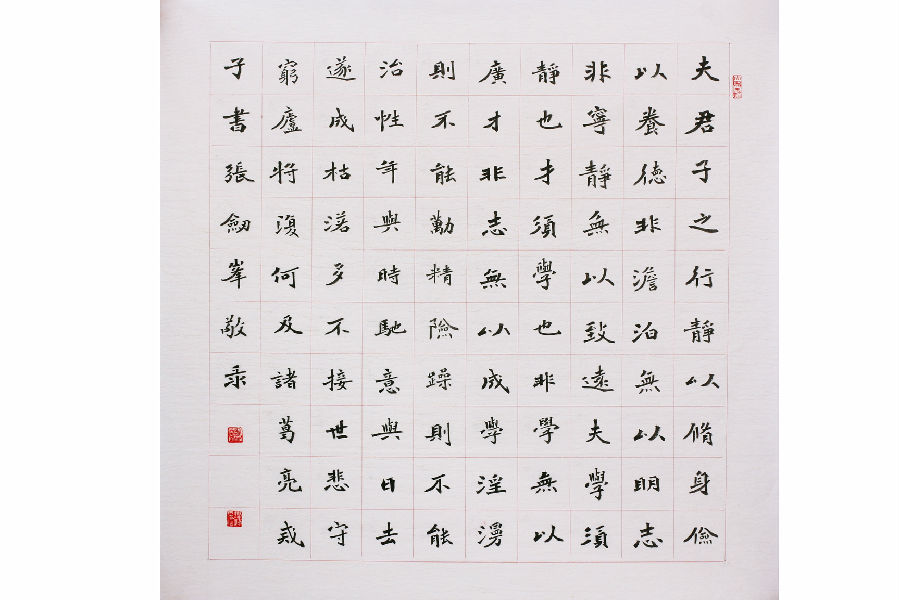 夫君子之行靜以脩身儉
以養德非澹泊無以明志
非寧靜無以致遠夫學須
靜也才須學也非學無以
廣才非志無以成學淫漫
則不能勵精險躁則不能
治性年與時馳意與日去
遂成枯落多不接世悲守
窮廬將復何及諸葛亮戒
子書張劔峯敬录